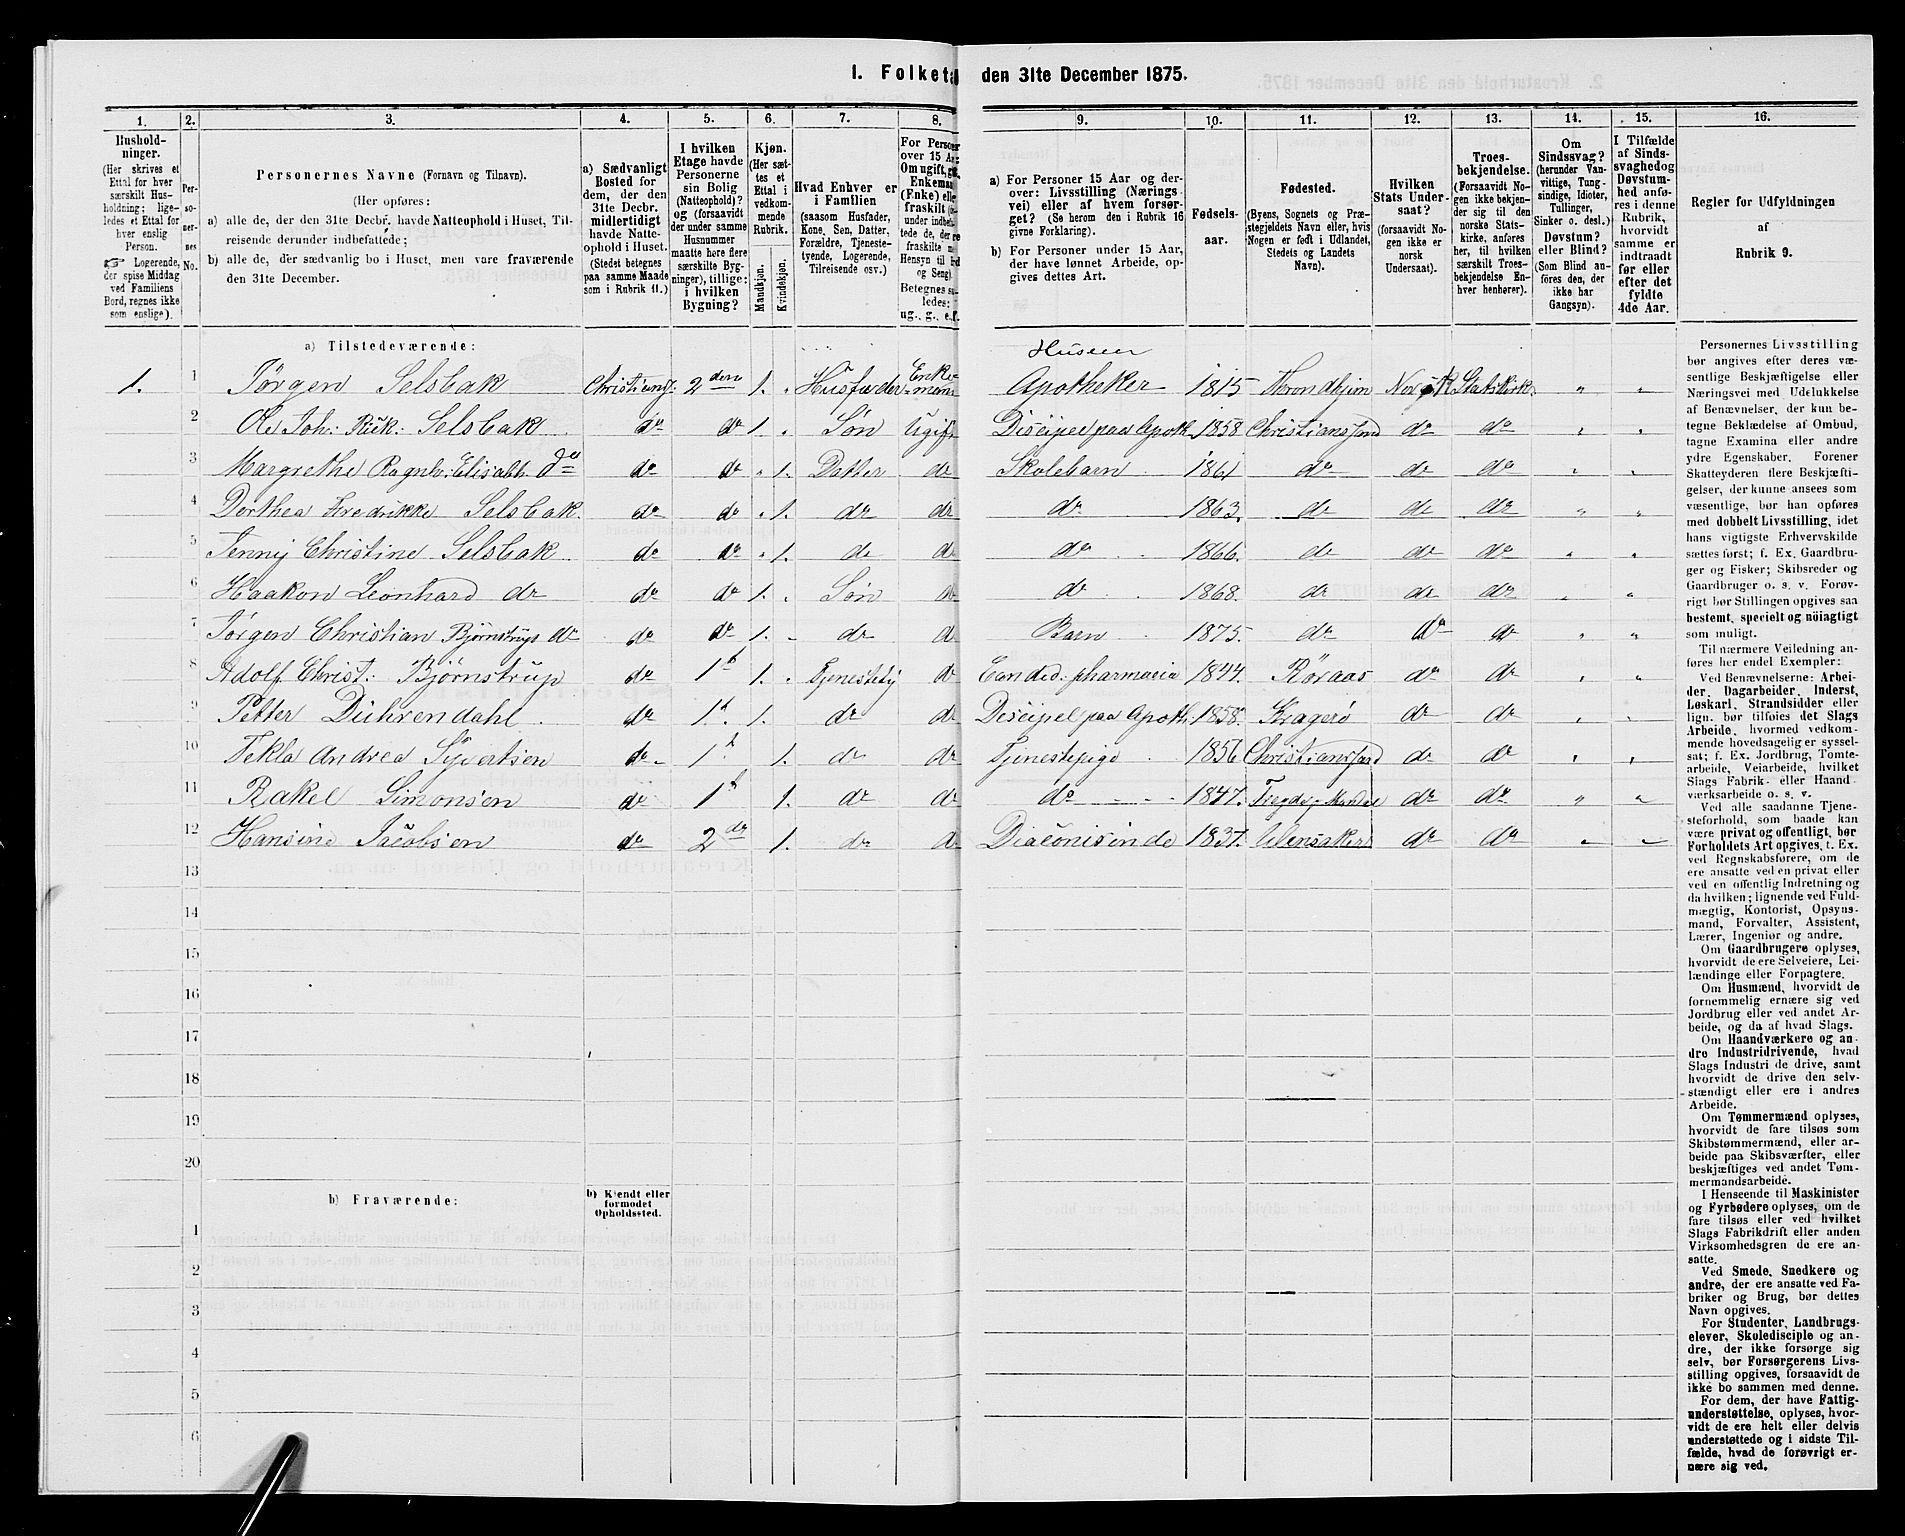 I. Folketæ
den 31te December 1875.
1. 2. 3. 4. 5. 6. 7. 8. 9. 10. 11. 12. 13. 14. 15. 16.
Hushold-
ninger.
(Her skrives et
Ettal for hver
særskilt Hus-
holdning; lige-
ledes et Ettal for
hver enslig
Person.
☞ Logerende,
der spise Middag
ved Familiens
Bord, regnes ikke
som enslige).
Per-
so-
ner-
nes
No.
Personernes Navne (Fornavn og Tilnavn).
(Her opføres:
a) alle de, der den 31te Decbr. havde Natteophold i Huset, Til-
reisende derunder indbefattede;
b) alle de, der sædvanlig bo i Huset, men vare fraværende
den 31te December.
a) Sædvanligt
Bosted for
dem, der den
31te Decbr.
midlertidigt
havde Natte-
ophold i Huset.
(Stedet betegnes
paa samme Maade
som i Rubrik 11.)
I hvilken
Etage havde
Personerne
sin Bolig
(Natteophold)?
og (forsaavidt
der under samme
Husnummer
maatte høre flere
særskilte Byg-
ninger), tillige:
i hvilken
Bygning?
Kjøn.
(Her sæt-
tes et
Ettal i
vedkom-
mende
Rubrik.
Mandkjøn.
Kvindekjøn.
Hvad Enhver er
i Familien
(saasom Husfader,
Kone, Søn, Datter,
Forældre, Tjeneste-
tyende, Logerende,
Tilreisende osv.)
For Person
over 15 Aar
Om ugift, gift
Enkema
(Enke) elle
fraskilt
under indbefat-
tede de, der
fraskilte
Hensyn til
og Seng)
Betegnes så
ledes:
ug., g., e. f.
a) For Personer 15 Aar og der-
over: Livsstilling (Nærings
vei) eller af hvem forsør-
get? (Se herom den i Rubrik 16
givne Forklaring).
b) For Personer under 15 Aar,
der have lønnet Arbeide, op-
gives dettes Art.
Fødsels-
aar.
Fødested.
(Byens, Sognets og Præ-
stegjeldets Navn eller, hvis
Nogen er født i Udlandet,
Stedets og Landets
Navn).
Hvilken
Stats Under-
saat?
(forsaavidt No-
gen ikke er
norsk
Undersaat).
Troes-
bekjendelse.
(Forsaavidt No-
gen ikke bekjen-
der sig til den
norske Stats-
kirke, anføres
her, til hvilken
særskilt Troes-
bekjendelse En-
hver henhører).
Om
Sindssvag?
(herunder Van-
vittige, Tung-
sindige, Idioter,
Tullinger,
Sinker o. desl.)
Døvstum?
eller Blind?
(Som Blind an-
føres den, der
ikke har
Gangsyn).
I Tilfælde
af Sinds-
svaghedog
Døvstum-
hed anfø-
res i denne
Rubrik,
hvorvidt
samme er
indtraadt
før eller
efter det
fyldte
4de Aar.
Regler for Udfyldningen
af
Rubrik 9.
a) Tilstedeværende:
Huseier
1. 1 Jørgen Selsbak Christians. 2den 1. „ Husfader Enke-mand Apotheker 1815 Throndhjem Norsk Statskirke „ „
2 Ole Joh: Rick: Selsbak do do 1. „ Søn Ugift Discipel paa Apoth. 1858 Christianssand do do „ „
3 Margrethe Ragnh: Elisabth do do do „ 1. Datter do Skolebarn 1861 do do do „ „
4 Dorthea Fredrikke Selsbak do do „ 1. do do do 1863. do do do „ „
5 Jenny Christine Selsbak do do „ 1. do do do 1866. do do do „ „
6 Haakon Leonhard do do do 1. „ Søn do do 1868. do do do „ „
7 Jørgen Christian Bjørnstrup do do do 1. „ do do Barn 1875. do do do „ „
8 Adolf Christ: Bjørnstrup do 1st 1. „ Tjenestety do Canded. pharmacia 1844. Røraas do do „ „
9 Petter Dührendahl do 1st. 1. do do Discipel paa Apoth. 1858. Kragerø do do „ „
10 Tekla Andrea Syvertsen do 1st 1. do do Tjenestepige 1856 Christianssand do do „ „
11 Rakel Simonsen do 1st 1. do do do 1847. do do „ „
12 Hansine Jacobsen do 2den 1. do do Diaconisinde 1837. Ulensaker do do „ „
13
14
15
16
17
18
19
20
b) Fraværende:
b) Kjendt eller
formodet
Opholdssted.
1
2
3
4
5
6
Personernes Livsstilling
bør angives efter deres væ-
sentlige Beskjæftigelse eller
Næringsvei med Udelukkelse
af Benævnelser, der kun be-
tegne Beklædelse af Ombud,
tagne Examina eller andre
ydre Egenskaber. Forener
Skatteyderen flere Beskjæfti-
gelser, der kunne ansees som
væsentlige, bør han opføres
med dobbelt Livsstilling, idet
hans vigtigste Erhvervskilde
sættes først; f. Ex. Gaardbru-
ger og Fisker; Skibsreder og
Gaardbruger o. s. v. Forøv-
rigt bør Stillingen opgives saa
bestemt, specielt og nöiagtigt
som muligt.
Til nærmere Veiledning an-
føres her endel Exempler:
Ved Benævnelserne: Arbei-
der, Dagarbeider, Inderst,
Løskarl, Strandsidder eller
lign. bør tilføies det Slags
Arbeide, hvormed vedkom-
mende hovedsagelig er syssel-
sat; f. Ex. Jordbrug, Tømte-
arbeide, Veiarbeide, hvilket
Slags Fabrik- eller Haand-
værksarbeide o. s. v.
Ved alle saadanne Tjene-
steforhold, som baade kan
være privat og offentligt, bør
Forholdets Art opgives, f. Ex.
ved Regnskabsførere, om de
ere ansatte ved en privat eller
ved en offentlig Indretning og
da hvilken; lignende ved Fuld-
mægtig, Kontorist, Opsyns-
mand, Forvalter, Assistent,
Lærer, Ingeniør og andre.
Om Gaardbrugere oplyses,
hvorvidt de ere Selveiere, Lei-
lændinge eller Forpagtere.
Om Husmænd, hvorvidt de
fornemmelig ernære sig ved
Jordbrug eller ved andet Ar-
beide, og da af hvad Slags.
Om Haandværkere og an-
dre Industridrivende, hvad
Slags Industri de drive, samt
hvorvidt de drive den selv-
stændigt eller ere i andres
Arbeide.
Om Tømmermænd oplyses,
hvorvidt de fare tilsøs som
Skibstømmermænd, eller ar-
beide paa Skibsværfter, eller
beskjæftiges ved andet Tøm-
mermandsarbeide.
I Henseende til Maskinister
og Fyrbødere oplyses, om de
fare tilsøs eller ved hvilket
Slags Fabrikdrift eller anden
Virksomhedsgren de ere an-
satte.
Ved Smede, Snedkere og
andre, der ere ansatte ved Fa-
briker og Brug, bør dettes
Navn opgives.
For Studenter, Landbrugs-
elever, Skoledisciple og an-
dre, der ikke forsørge sig
selv, bør Forsørgerens Livs-
stilling opgives, forsaavidt de
ikke bo sammen med denne.
For dem, der have Fattig-
understøttelse, oplyses, hvor-
vidt de ere helt eller delvis
understøttede og i sidste Til-
fælde, hvad de forøvrigt er-
nære sig ved.